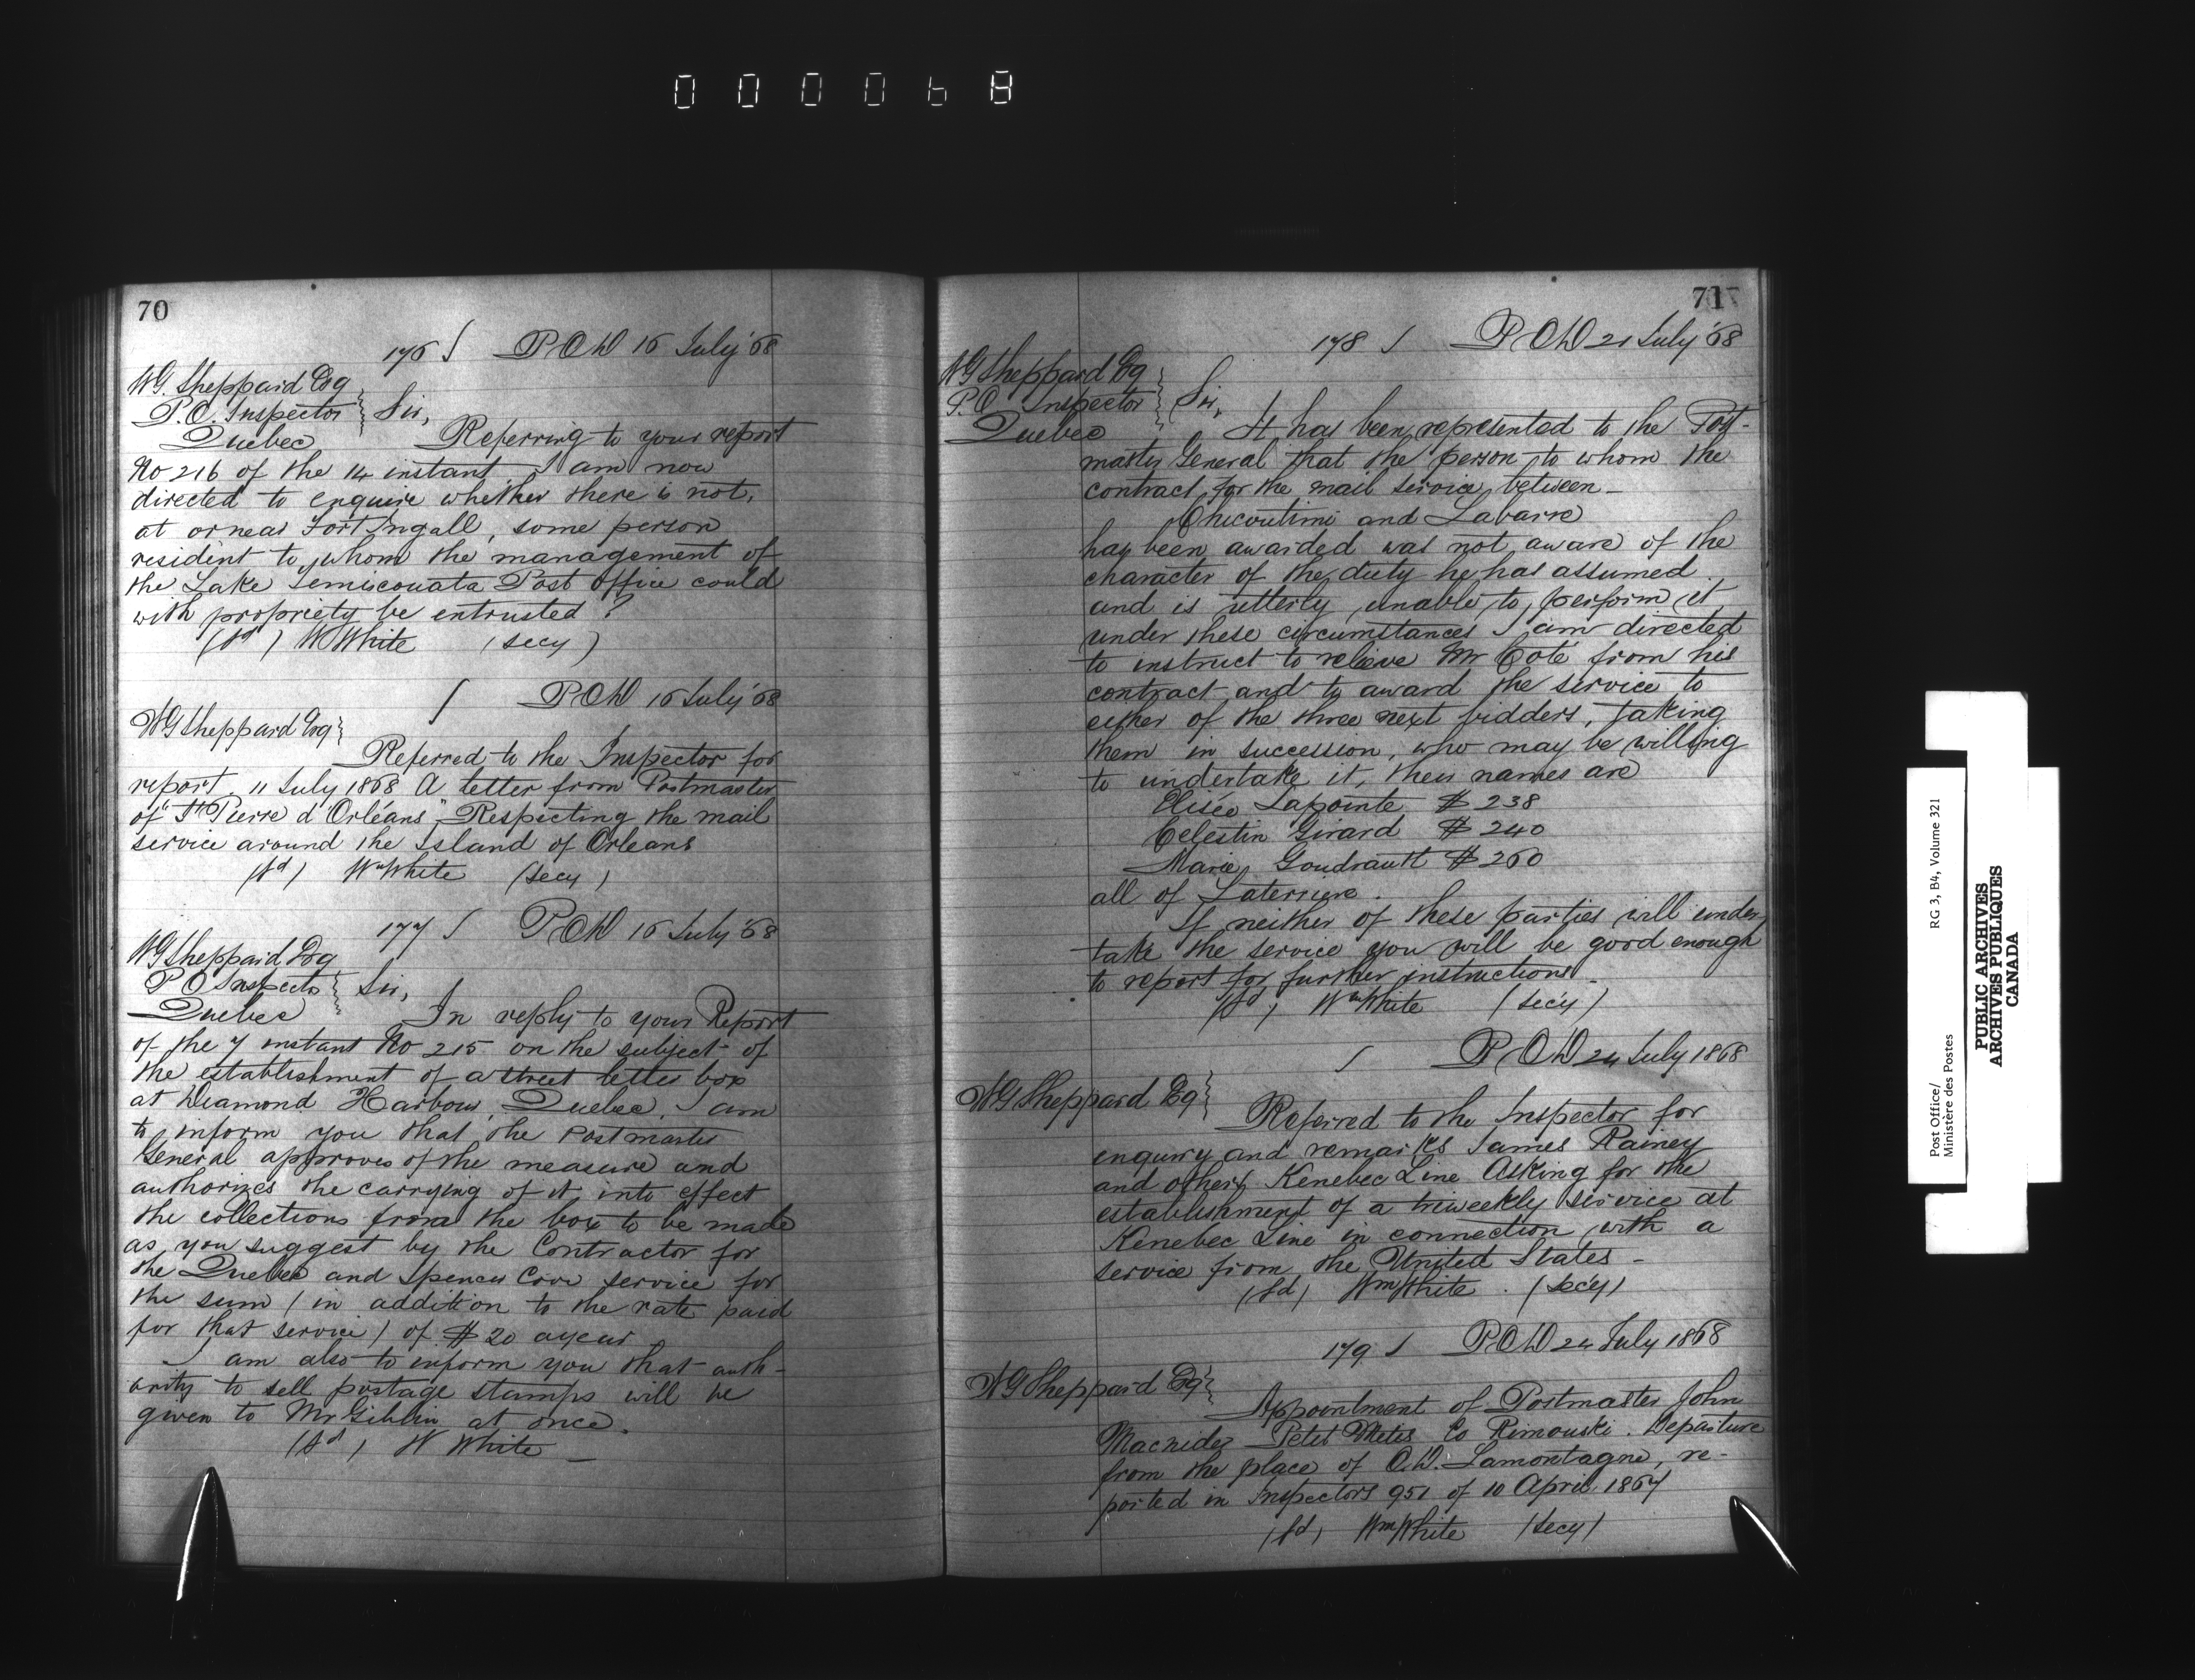 000068
70
176 S P.O.D 16 July '68
W.G. Sheppard Esq
P.O. Inspector } Sir,
Quebec Referring to your report
No 216 of the 14 instant I am now
directed to enquire whether there is not,
at or near Fort Ingall, some person
resident to whom the management of
the Lake Temiscouata Post Office could
with propriety be entrusted?
(sd) W White (secy)
S P.O.D 16 July '68
W G Sheppard Esq }
Referred to the Inspector for
report. 11 July 1868 A letter from Postmaster
of "St Pierre d'Orléans" Respecting the mail
service around the Island of Orleans
(sd) Wm White (secy)
177 S P.O.D 16 July '68
W G Sheppard Esq
P O Inspector } Sir,
Quebec In reply to your Report
of the 7 instant No 215 on the subject of
the establishment of a street letter box
at Diamond Harbour, Quebec. I am
to inform you that the Postmaster
General approves of the measure and
authorizes the carrying of it into effect
the collections from the box to be made
as you suggest by the Contractor for
the Quebec and Spencer Cove service for
the sum (in addition to the rate paid
for that service) of $20 a year
I am also to inform you that auth-
ority to sell postage stamps will be
given to Mr Giblin at once.
(sd) W White
71
178 S P.O.D 21 July '68
W G Sheppard Esq
P.O. Inspector } Sir,
Quebec It has been represented to the Post-
master General that the person to whom the
contract for the mail service between
Chicoutimi and Labarre
has been awarded was not aware of the
character of the duty he has assumed
and is utterly unable to perform it
under these circumstances I am directed
to instruct to relieve Mr Coté from his
contract and to award the service to
either of the three next bidders, taking
them in succession, who may be willing
to undertake it, their names are
Elisée Lapointe $238
Celestin Girard $240
Marie Goudrault $260
all of Laterriere.
If neither of these parties will under
take the service you will be good enough
to report for further instructions.
(sd) Wm White (secy)
S P.O.D 24 July 1868
W G Sheppard Esq }
Referred to the Inspector for
enquiry and remarks James Rainey
and others Kenebec Line Asking for the
establishment of a triweekly service at
Kenebec Line in connection with a
service from the United States -
(sd) Wm White. (secy)
179 S P.O.D 24 July 1868
W G Sheppard Esq }
Appointment of Postmaster John
Macnider Petit Metis Co Rimouski. Departure
from the place of O.D. Lamontagne, re-
ported in Inspectors 951 of 10 April 1867
(sd) Wm White (secy)
Post Office/
Ministère des Postes
RG 3, B4, Volume 321
PUBLIC ARCHIVES
ARCHIVES PUBLIQUES
CANADA